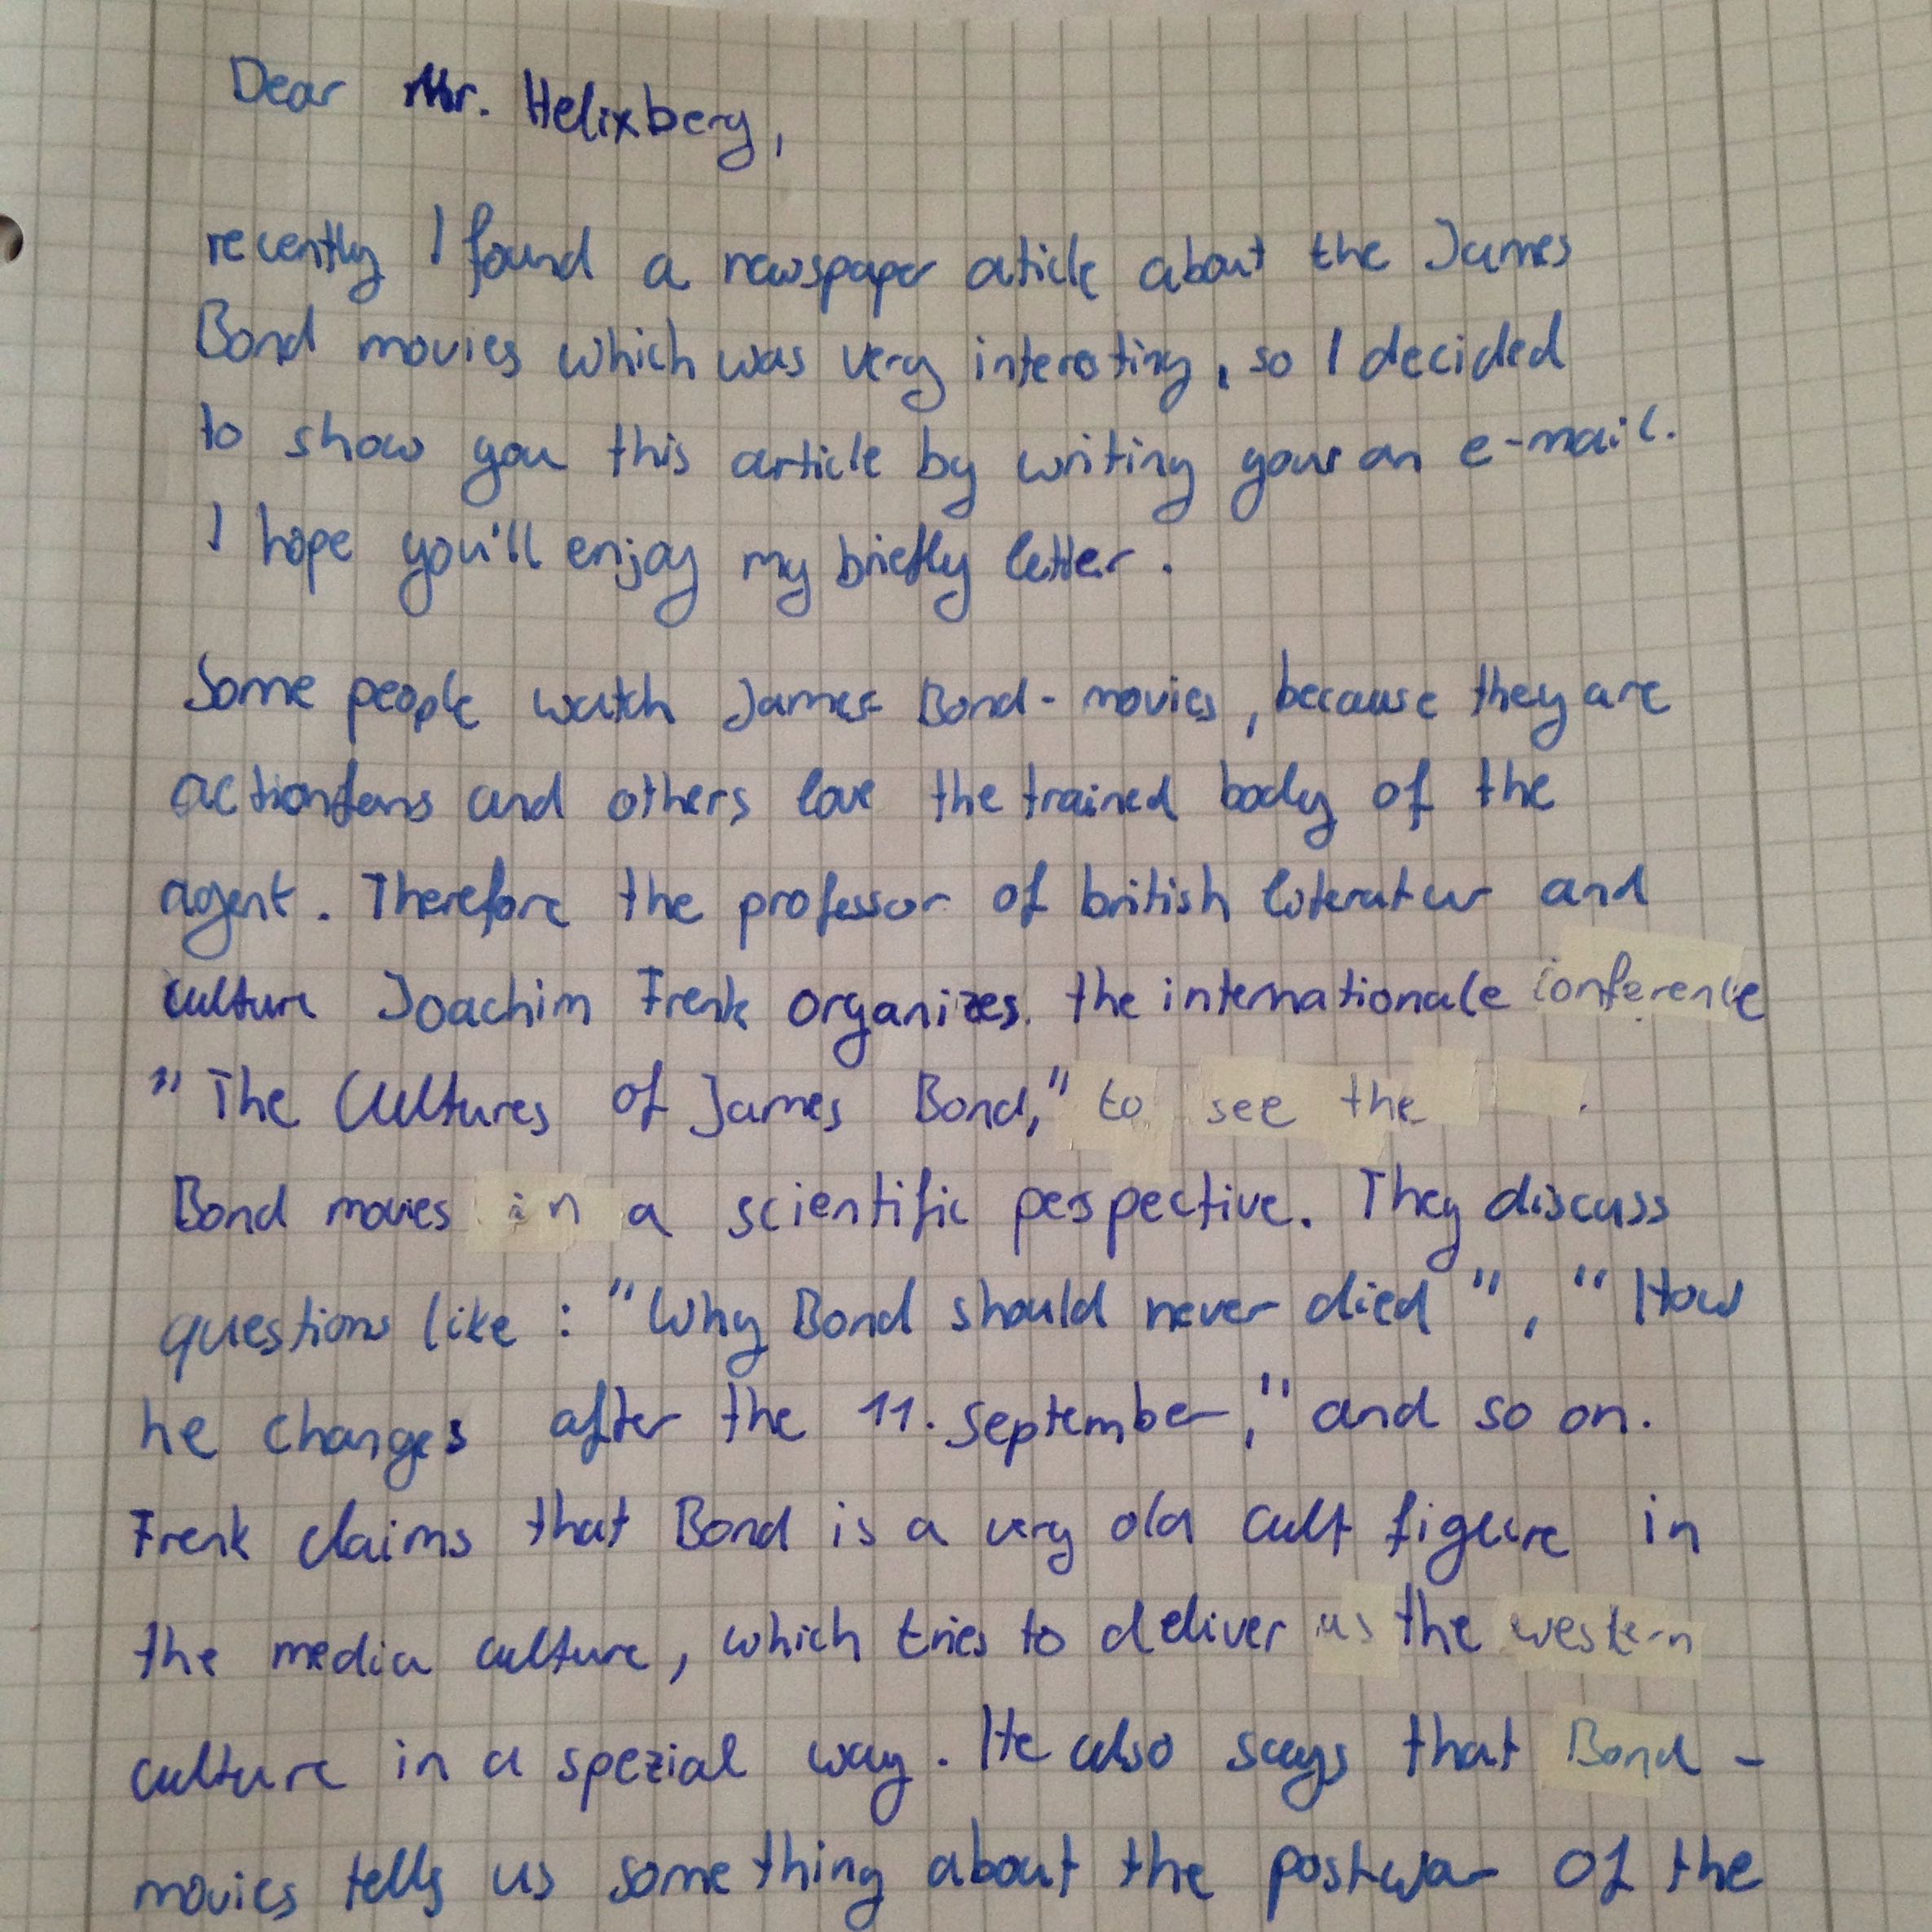 Dear Mr. Helixberg,
recently I found a newspaper aticle about the James
Bond movies which was very interesting, so I decided
to show you this article by writing your an e-mail.
I hope you'll enjoy my briefly letter.
Some people watch James Bond - movies, because they are
actionfans and others love the trained body of the
agent. Therefore the professor of british literatur and
culture Joachim Frenk organizes. the internationale conference
" The Cultures of James Bond," to see the .
Bond movies in a scientific perspective. They discuss
questions like : "Why Bond should never died ", " How
he changes after the 11. September," and so on.
Frenk claims that Bond is a very old cult figure in
the media culture, which tries to deliver us the western
culture in a spezial way. He also says that Bond -
movies tells us something about the postwar of the